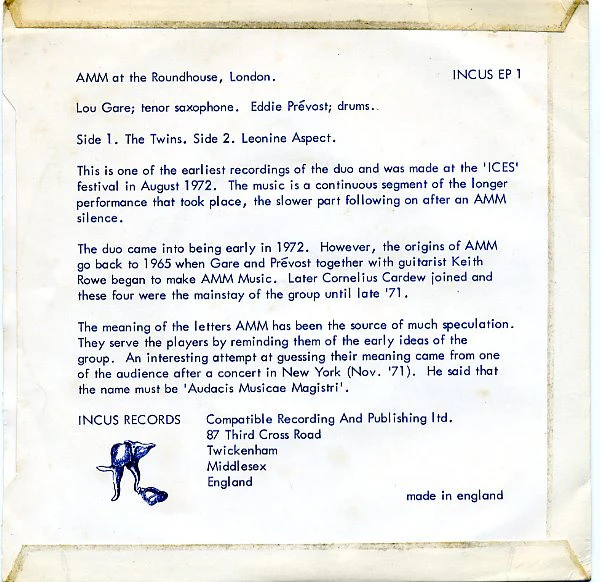 AMM at the Roundhouse, London.
INCUS EP 1
Lou Gare; tenor saxophone. Eddie Prévost; drums.
Side 1. The Twins. Side 2. Leonine Aspect.
This is one of the earliest recordings of the duo and was made at the 'ICES'
festival in August 1972. The music is a continuous segment of the longer
performance that took place, the slower part following on after an AMM
silence.
The duo came into being early in 1972. However, the origins of AMM
go back to 1965 when Gare and Prévost together with guitarist Keith
Rowe began to make AMM Music. Later Cornelius Cardew joined and
these four were the mainstay of the group until late '71.
The meaning of the letters AMM has been the source of much speculation.
They serve the players by reminding them of the early ideas of the
group. An interesting attempt at guessing their meaning came from one
of the audience after a concert in New York (Nov. '71). He said that
the name must be 'Audacis Musicae Magistri'.
INCUS RECORDS
Compatible Recording And Publishing ltd.
87 Third Cross Road
Twickenham
Middlesex
England
made in england